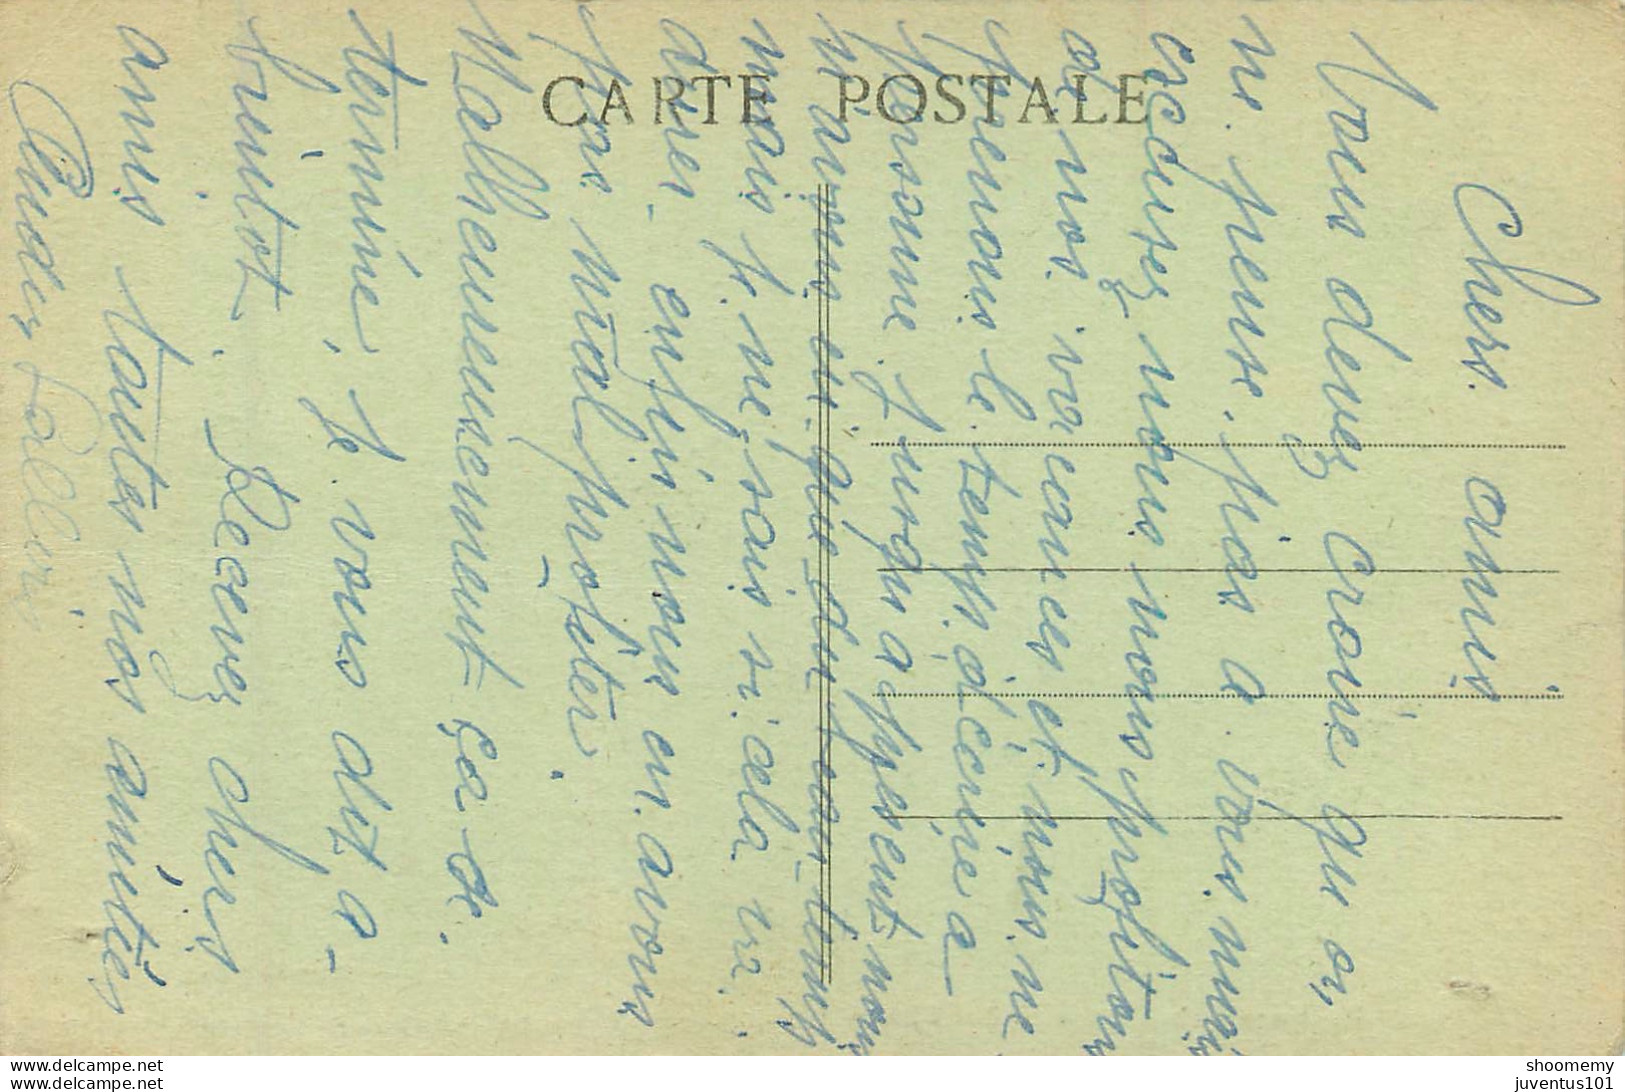 CARTE POSTALE
Chers amis
Vous devez croire qu on
ne pense pas a vous mais
excusez nous nous profitons
de nos vacances et nous ne
prenons le temps d'écrire a
personne. Jusqu a present nous
n'avons eu que du beau temps
mais je ne sais si cela va
durer - enfin nous en avons
pas mal profiter.
Malheureusement ça se.
termine, je vous dit a-
bientot. Recevez chers
amis toutes nos amitiés
shoomemy
juventus101